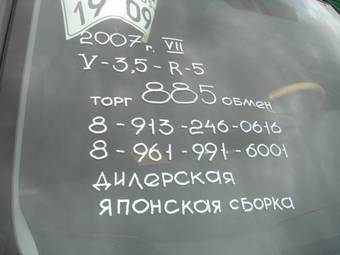 19 09
2007 г. VII
V-3,5-R-5
торг 885 обмен
8-913-246-0616
8-961-991-6001
дилерская
японская сборка